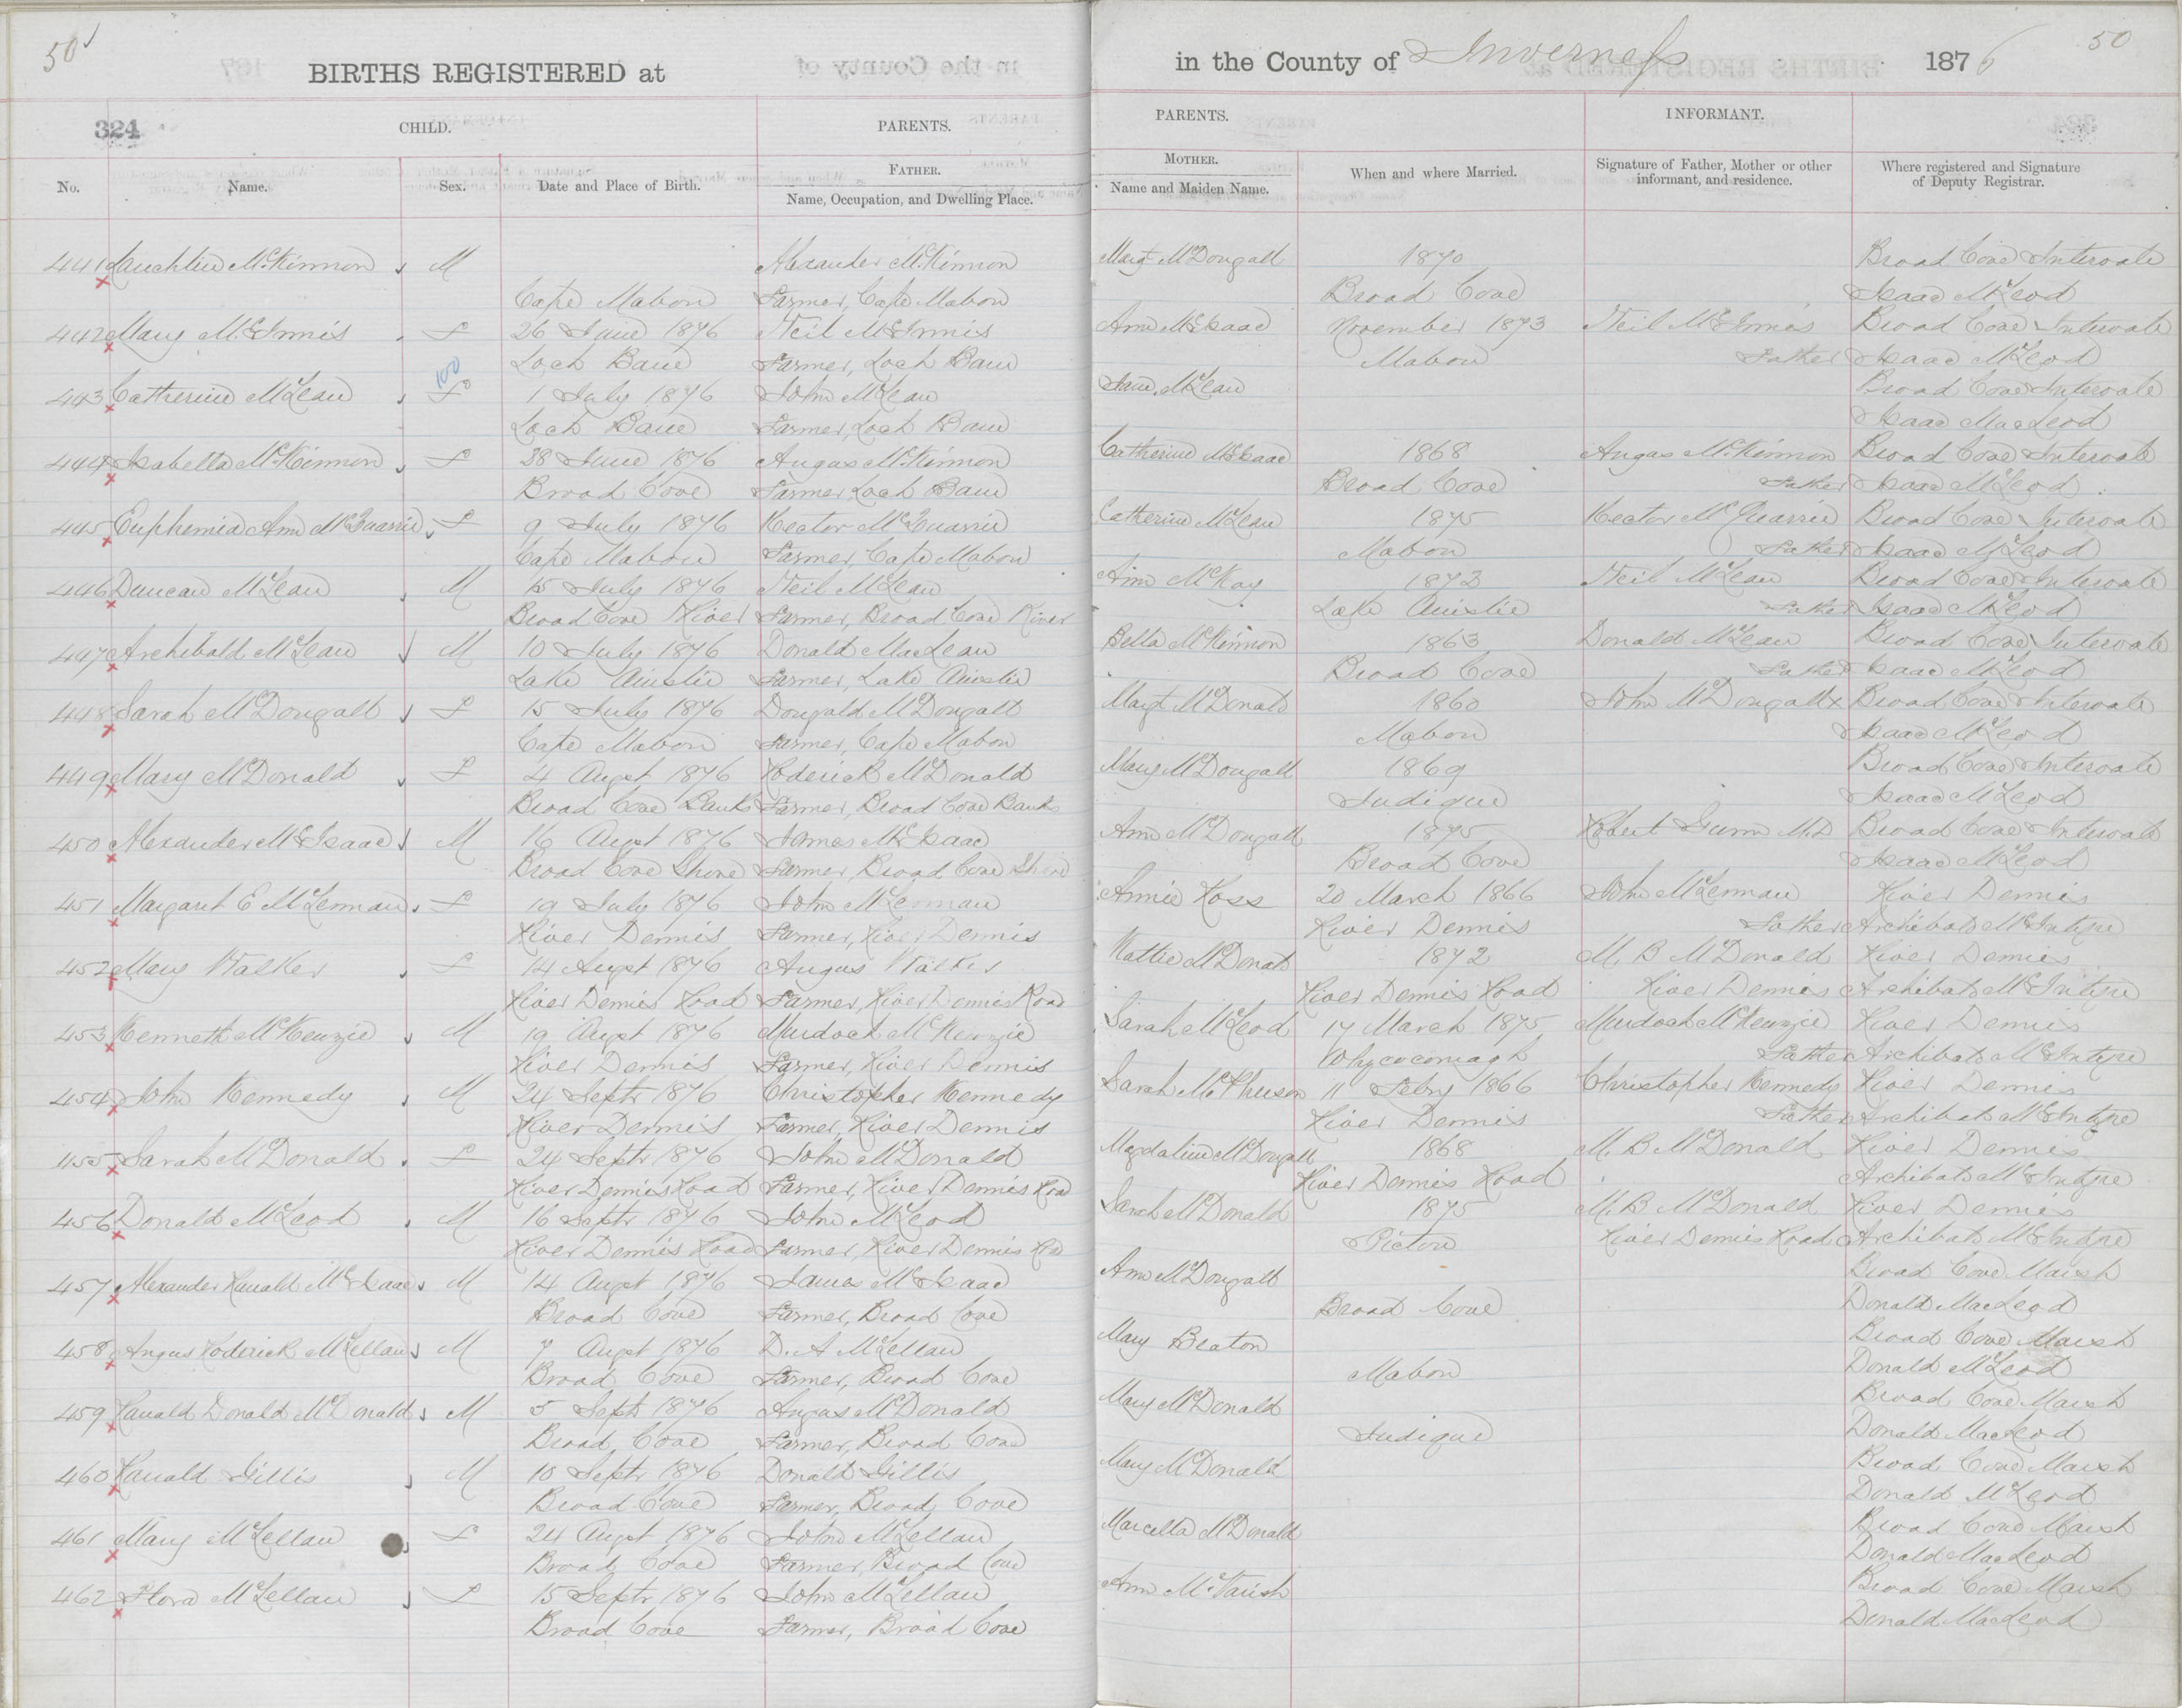 50
BIRTHS REGISTERED at
in the County of Inverness 1876
50
324
CHILD.
PARENTS.
PARENTS.
INFORMANT.
No.
Name.
Sex.
Date and Place of Birth.
FATHER.
Name, Occupation, and Dwelling Place.
MOTHER.
Name and Maiden Name.
When and where Married.
Signature of Father, Mother or other informant, and residence.
Where registered and Signature of Deputy Registrar.
441 Lauchlin McKinnon M Alexander McKinnon Margt McDougall 1870 Broad Cove Intervale
Cape Mabou Farmer, Cape Mabou Broad Cove Isaac McLeod
442 Mary McInnis F 26 June 1876 Neil McInnis Ann McIsaac November 1873 Neil McInnes Broad Cove Intervale
Loch Baue Farmer, Loch Baue Mabou Father Isaac McLeod
100
443 Catherine McLean F 1 July 1876 John McLean Jane McLean Broad Cove Intervale
Loch Baue Farmer, Loch Baue Isaac MacLeod
444 Isabella McKinnon F 28 June 1876 Angus McKinnon Catherine McIsaac 1868 Angus McKinnon Broad Cove Intervale
Broad Cove Farmer Loch Baue Broad Cove Father Isaac McLeod
445 Euphemia Ann McQuarrie F 9 July 1876 Hector McQuarrie Catherine McLean 1875 Hector McQuarrie Broad Cove Intervale
Cape Mabou Farmer, Cape Mabou Mabou Father Isaac McLeod
446 Duncan McLean M 15 July 1876 Neil McLean Ann McKay 1872 Neil McLean Broad Cove Intervale
Broad Cove River Farmer, Broad Cove River Lake Ainslie Father Isaac McLeod
447 Archibald McLean M 10 July 1876 Donald MacLean Bella McKinnon 1863 Donald McLean Broad Cove Intervale
Lake Ainslie Farmer, Lake Ainslie Broad Cove Father Isaac McLeod
448 Sarah McDougall F 15 July 1876 Dougald McDougall Margt McDonald 1860 John McDougall x Broad Cove Intervale
Cape Mabou Farmer, Cape Mabou Mabou Isaac McLeod
449 Mary McDonald F 4 Augst 1876 Roderick McDonald Mary McDougall 1869 Broad Cove Intervale
Broad Cove Banks Farmer, Broad Cove Banks Judique Isaac McLeod
450 Alexander McIsaac M 16 Augst 1876 James McIsaac Ann McDougall 1875 Robert Gunn M.D Broad Cove Intervale
Broad Cove Shore Farmer, Broad Cove Shore Broad Cove Isaac McLeod
451 Margaret E McLennan F 19 July 1876 John McLennan Annie Ross 20 March 1866 John McLennan River Dennis
River Dennis Farmer, River Dennis River Dennis Father Archibald McIntyre
452 Mary Walker F 14 Augst 1876 Angus Walker Mattie McDonald 1872 M. B McDonald River Dennis
River Dennis Road Farmer, River Dennis Road River Dennis Road River Dennis Archibald McIntyre
453 Kenneth McKenzie M 19 Augst 1876 Murdoch McKenzie Sarah McLeod 17 March 1875 Murdoch McKenzie River Dennis
River Dennis Farmer, River Dennis Whycocomagh Father Archibald McIntyre
454 John Kennedy M 24 Septr 1876 Christopher Kennedy Sarah McPherson 11 Febry 1866 Christopher Kennedy River Dennis
River Dennis Farmer, River Dennis River Dennis Father Archibald McIntyre
455 Sarah McDonald F 24 Septr 1876 John McDonald Magdaline McDougall 1868 M. B McDonald River Dennis
River Dennis Road Farmer, River Dennis Road River Dennis Road Archibald McIntyre
456 Donald McLeod M 16 Septr 1876 John McLeod Sarah McDonald 1875 M. B McDonald River Dennis
River Dennis Road Farmer, River Dennis Rd Pictou River Dennis Road Archibald McIntyre
457 Alexander Ranald McIsaac M 14 Augst 1876 James McIsaac Ann McDougall Broad Cove Marsh
Broad Cove Farmer, Broad Cove Broad Cove Donald MacLeod
458 Angus Roderick McLellan M 7 Augst 1876 D. A McLellan Mary Beaton Broad Cove Marsh
Broad Cove Farmer, Broad Cove Mabou Donald McLeod
459 Ranald Donald McDonald M 5 Septr 1876 Angus McDonald Mary McDonald Broad Cove Marsh
Broad Cove Farmer, Broad Cove Judique Donald MacLeod
460 Ranald Gillis M 10 Septr 1876 Donald Gillis Mary McDonald Broad Cove Marsh
Broad Cove Farmer, Broad Cove Donald McLeod
461 Mary McLellan F 24 Augst 1876 John McLellan Marcella McDonald Broad Cove Marsh
Broad Cove Farmer, Broad Cove Donald MacLeod
462 Flora McLellan F 15 Septr 1876 John McLellan Ann McTavish Broad Cove Marsh
Broad Cove Farmer, Broad Cove Donald MacLeod